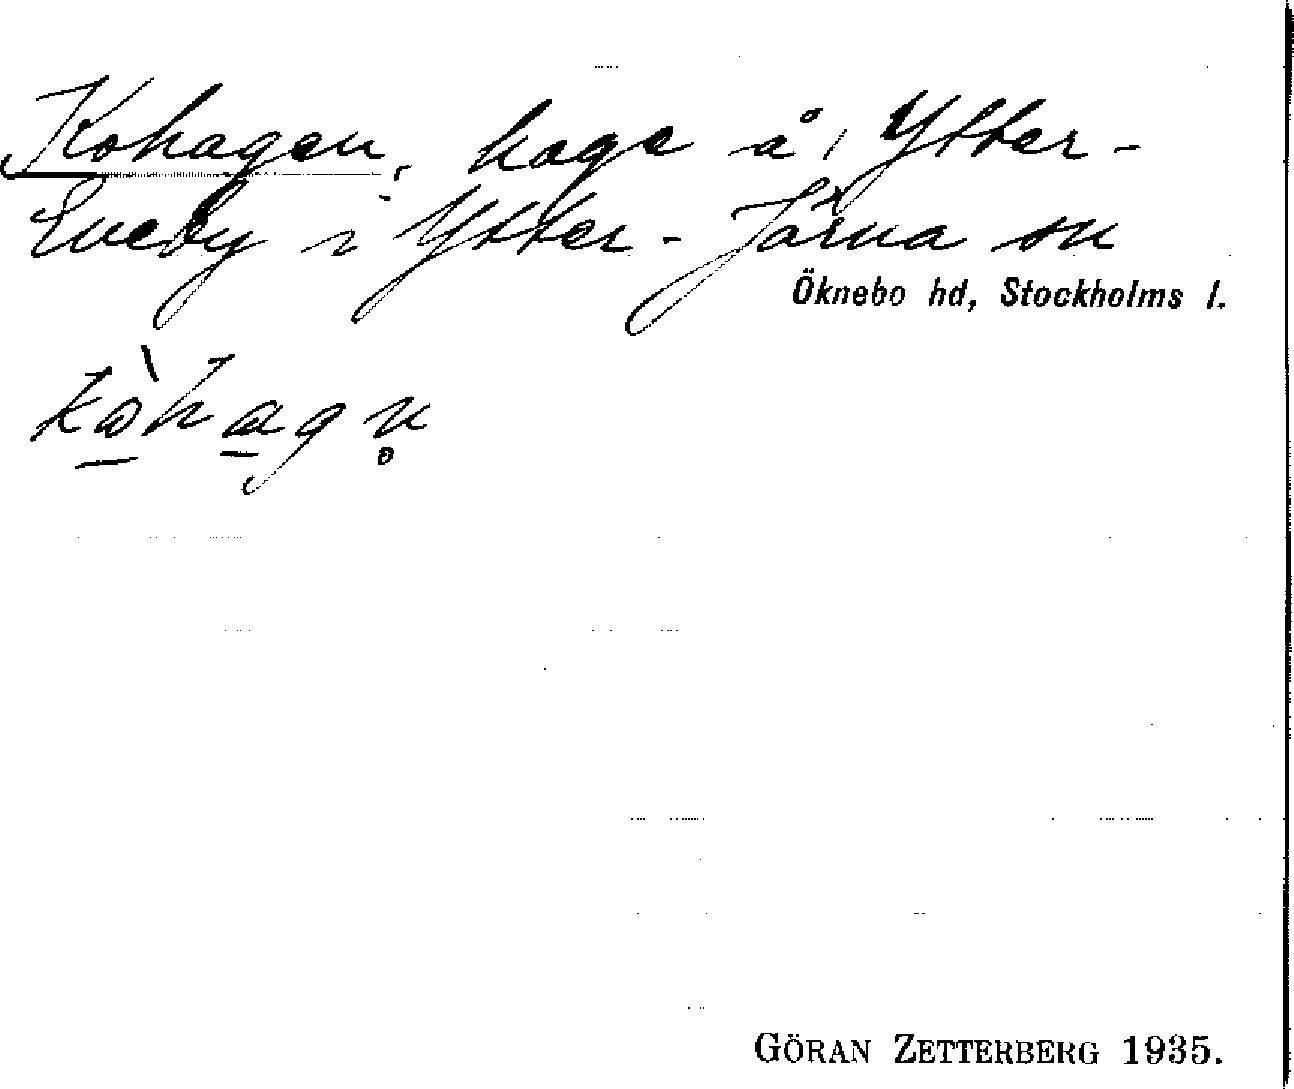 Kohagen, hage å Ytter-
Eneby i Ytter-Järna sn
Öknebo hd, Stockholms l.
kòhagn̥
GÖRAN ZETTERBERG 1935.